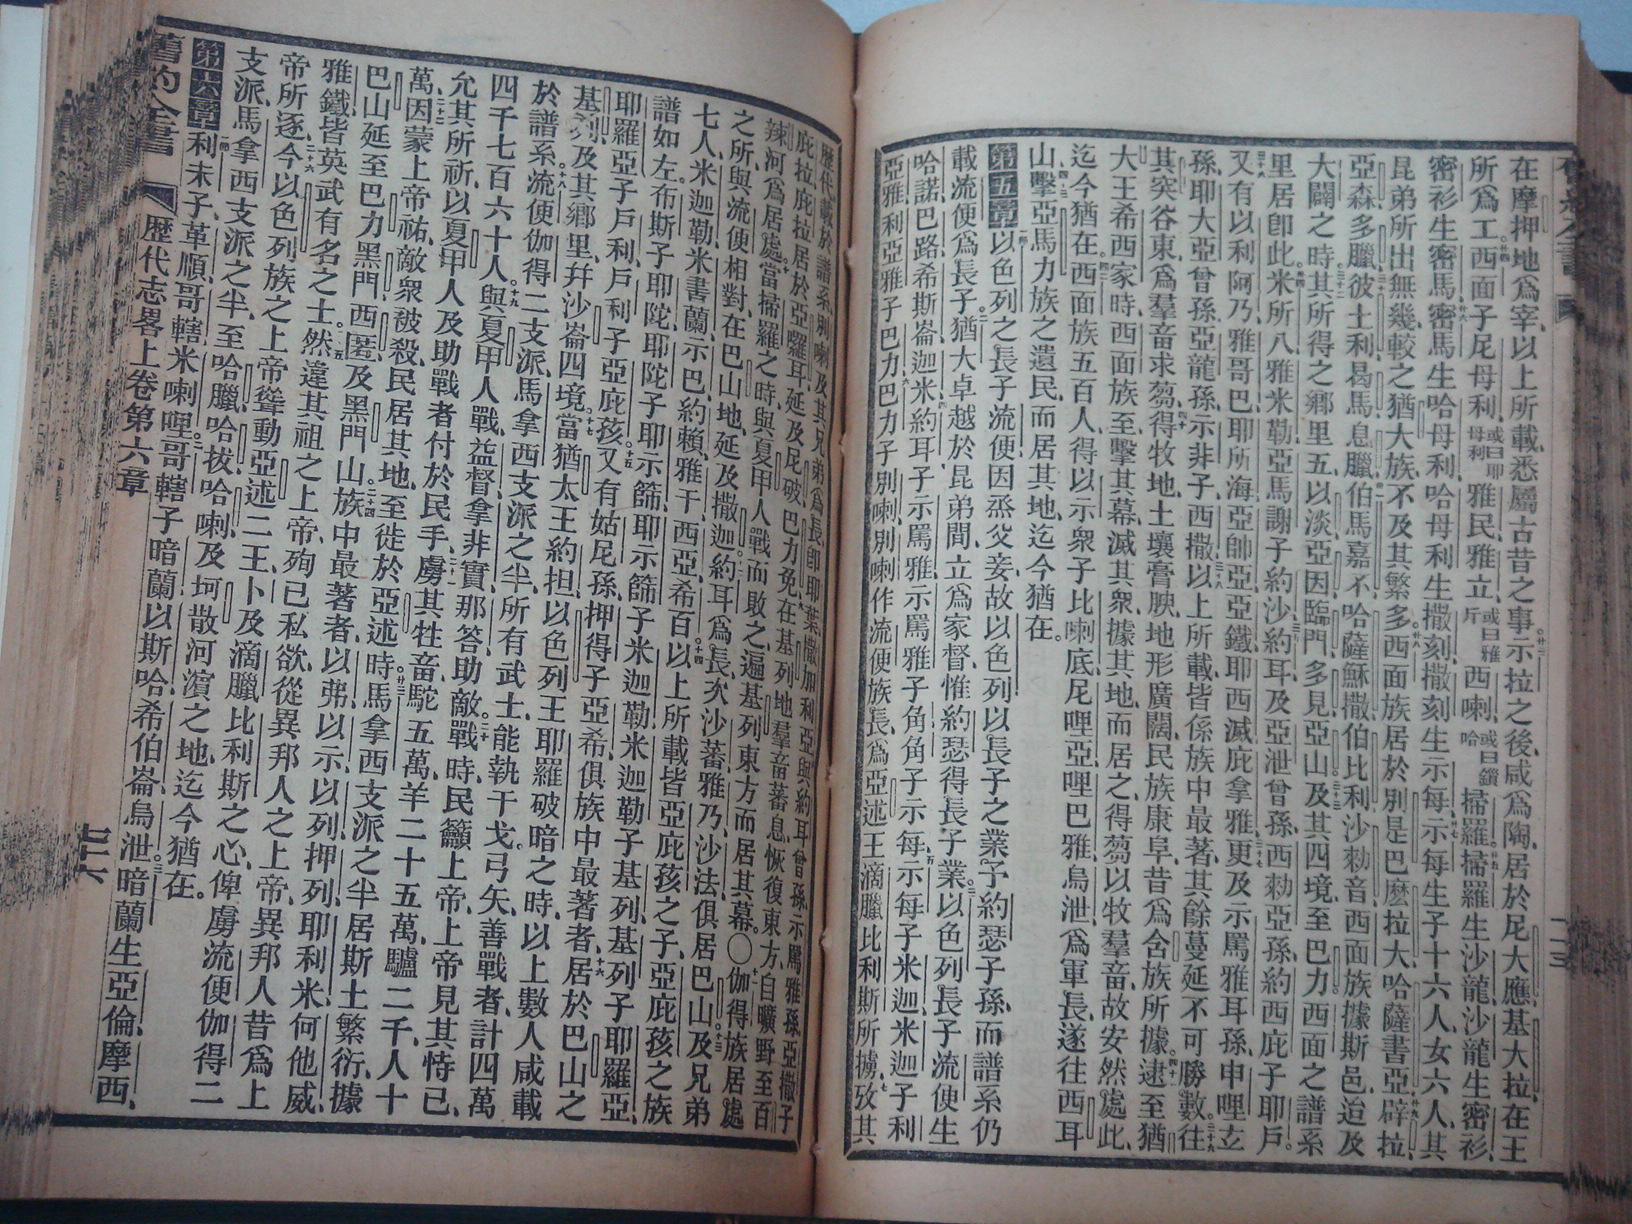 在摩押地爲宰、以上所載、悉屬古昔之事、示拉之後、咸爲陶、居於尼大應、基大拉、在王
所爲工。西面子尼母利、或曰耶母利雅民、雅立、或曰雅斤西喇、或曰鎖哈掃羅、掃羅生沙龍、沙龍生密衫、
密衫生密馬、密馬生哈母利、哈母利生撒刻、撒刻生示每、示每生子十六人、女六人、其
昆弟所出無幾、較之猶大族、不及其繁多、西面族居於別是巴、麽拉大、哈薩書亞、辟拉、
亞森、多臘、彼土利、曷馬、息臘、伯馬嘉不、哈薩穌撒、伯比利、沙勑音、西面族據斯邑、迨及
大闢之時、其所得之鄉里五、以淡、亞因、臨門、多見、亞山、及其四境、至巴力、西面之譜系
里居即此、米所八、雅米勒、亞馬謝子約沙、約耳、及亞泄曾孫、西勑亞孫、約西庇子耶戶。
又有以利阿乃、雅哥巴、耶所海、亞帥亞、亞鐵、耶西滅、庇拿雅、更及示罵雅耳孫、申哩玄
孫、耶大亞曾孫、亞龍孫、示非子西撒、以上所載、皆係族中最著、其餘蔓延、不可勝數。往
其突谷東、爲羣畜求芻、得牧地、土壤膏腴、地形廣闊、民族康阜、昔爲含族所據、逮至猶
大王希西家時、西面族至、擊其幕、滅其衆、據其地而居之、得芻以牧羣畜、故安然處此、
迄今猶在。西面族五百人、得以示衆子比喇底、尼哩亞、哩巴雅、烏泄爲軍長、遂往西耳
山、擊亞馬力族之遺民、而居其地、迄今猶在。
第五章以色列之長子流便、因烝父妾、故以色列以長子之業、予約瑟子孫、而譜系仍
載流便爲長子、猶大卓越於昆弟間、立爲家督、惟約瑟得長子業。以色列長子流便、生
哈諾、巴路、希斯崙、迦米、約耳子示罵雅、示罵雅子角、角子示每、示每子米迦、米迦子利
亞雅、利亞雅子巴力、巴力子別喇、別喇作流便族長、爲亞述王滴臘比利斯所擄、攷其
歷代載於譜系、別喇及其兄弟爲長、即耶葉、撒加利亞、與約耳曾孫、示罵雅孫、亞撒子
庇拉、庇拉居於亞囉耳、延及尼破、巴力免、在基列地、羣畜蕃息、恢復東方、自曠野至百
辣河爲居處、當掃羅之時、與夏甲人戰、而敗之、遍基列東方、而居其幕。〇伽得族居處
之所、與流便相對、在巴山地、延及撒迦、約耳爲長、次沙蕃、雅乃、沙法、俱居巴山、及兄弟
七人、米迦勒、米書蘭、示巴、約賴、雅干、西亞、希百、以上所載、皆亞庇孩之子、亞庇孩之族
譜如左、布斯子耶陀、耶陀子耶示篩、耶示篩子米迦勒、米迦勒子基列、基列子耶羅亞、
耶羅亞子戶利、戶利子亞庇孩。又有姑尼孫、押得子亞希、俱族中最著者、居於巴山之
基列、及其鄉里、幷沙崙四境。當猶大王約担、以色列王耶羅破暗之時、以上數人、咸載
於譜系。流便、伽得二支派、馬拿西支派之半、所有武士、能執干戈。弓矢、善戰者、計四萬
四千七百六十人。與夏甲人戰、益督、拿非實、那答、助敵、戰時、民籲上帝、上帝見其恃已、
允其所祈、以夏甲人及助戰者、付於民手、虜其牲畜、駝五萬、羊二十五萬、驢二千、人十
萬、因蒙上帝祐、敵衆被殺、民居其地、至徙於亞述時。馬拿西支派之半、居斯土繁衍、據
巴山、延至巴力黑門、西匿、及黑門山、族中最著者、以弗、以示、以列、押列、耶利米、何他威、
雅鐵、皆英武有名之士。然違其祖之上帝、殉已私欲、從異邦人之上帝、異邦人昔爲上
帝所逐、今以色列族之上帝、聳動亞述二王、卜、及滴臘比利斯之心、俾虜流便、伽得二
支派、馬拿西支派之半、至哈臘、哈拔、哈喇、及坷散河濱之地、迄今猶在。
第六章利未子革順、哥轄、米喇哩、哥轄子暗蘭、以斯哈、希伯崙、烏泄、暗蘭生亞倫、摩西、
舊約全書 歷代志畧上卷第六章